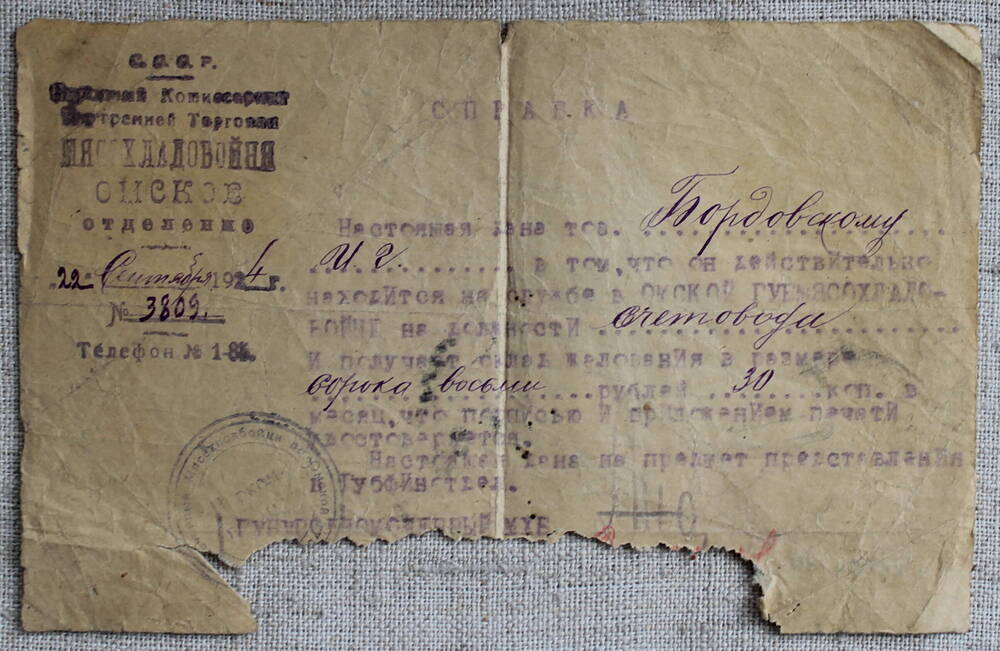 С.С.С.Р.
Народный Комиссариат
Внутренней Торговли
МЯСОХЛАДОБОЙНЯ
ОМСКОЕ
отделение
22 Сентября 1924 г.
№ 3809.
Телефон № 1-84.
СПРАВКА
Настоящая дана тов. Бордовскому
И. Г. в том, что он действительно
находится на службе в ОМСКОЙ ГУБМЯСОХЛАДО-
БОЙНЕ на должности счетовода
И получает оклад жалования в размере
сорока восьми рублей 30 коп. в
месяц, что подписью И приложением печатИ
удостоверяется.
Настоящая дана на предмет представления
в Губфинотдел.